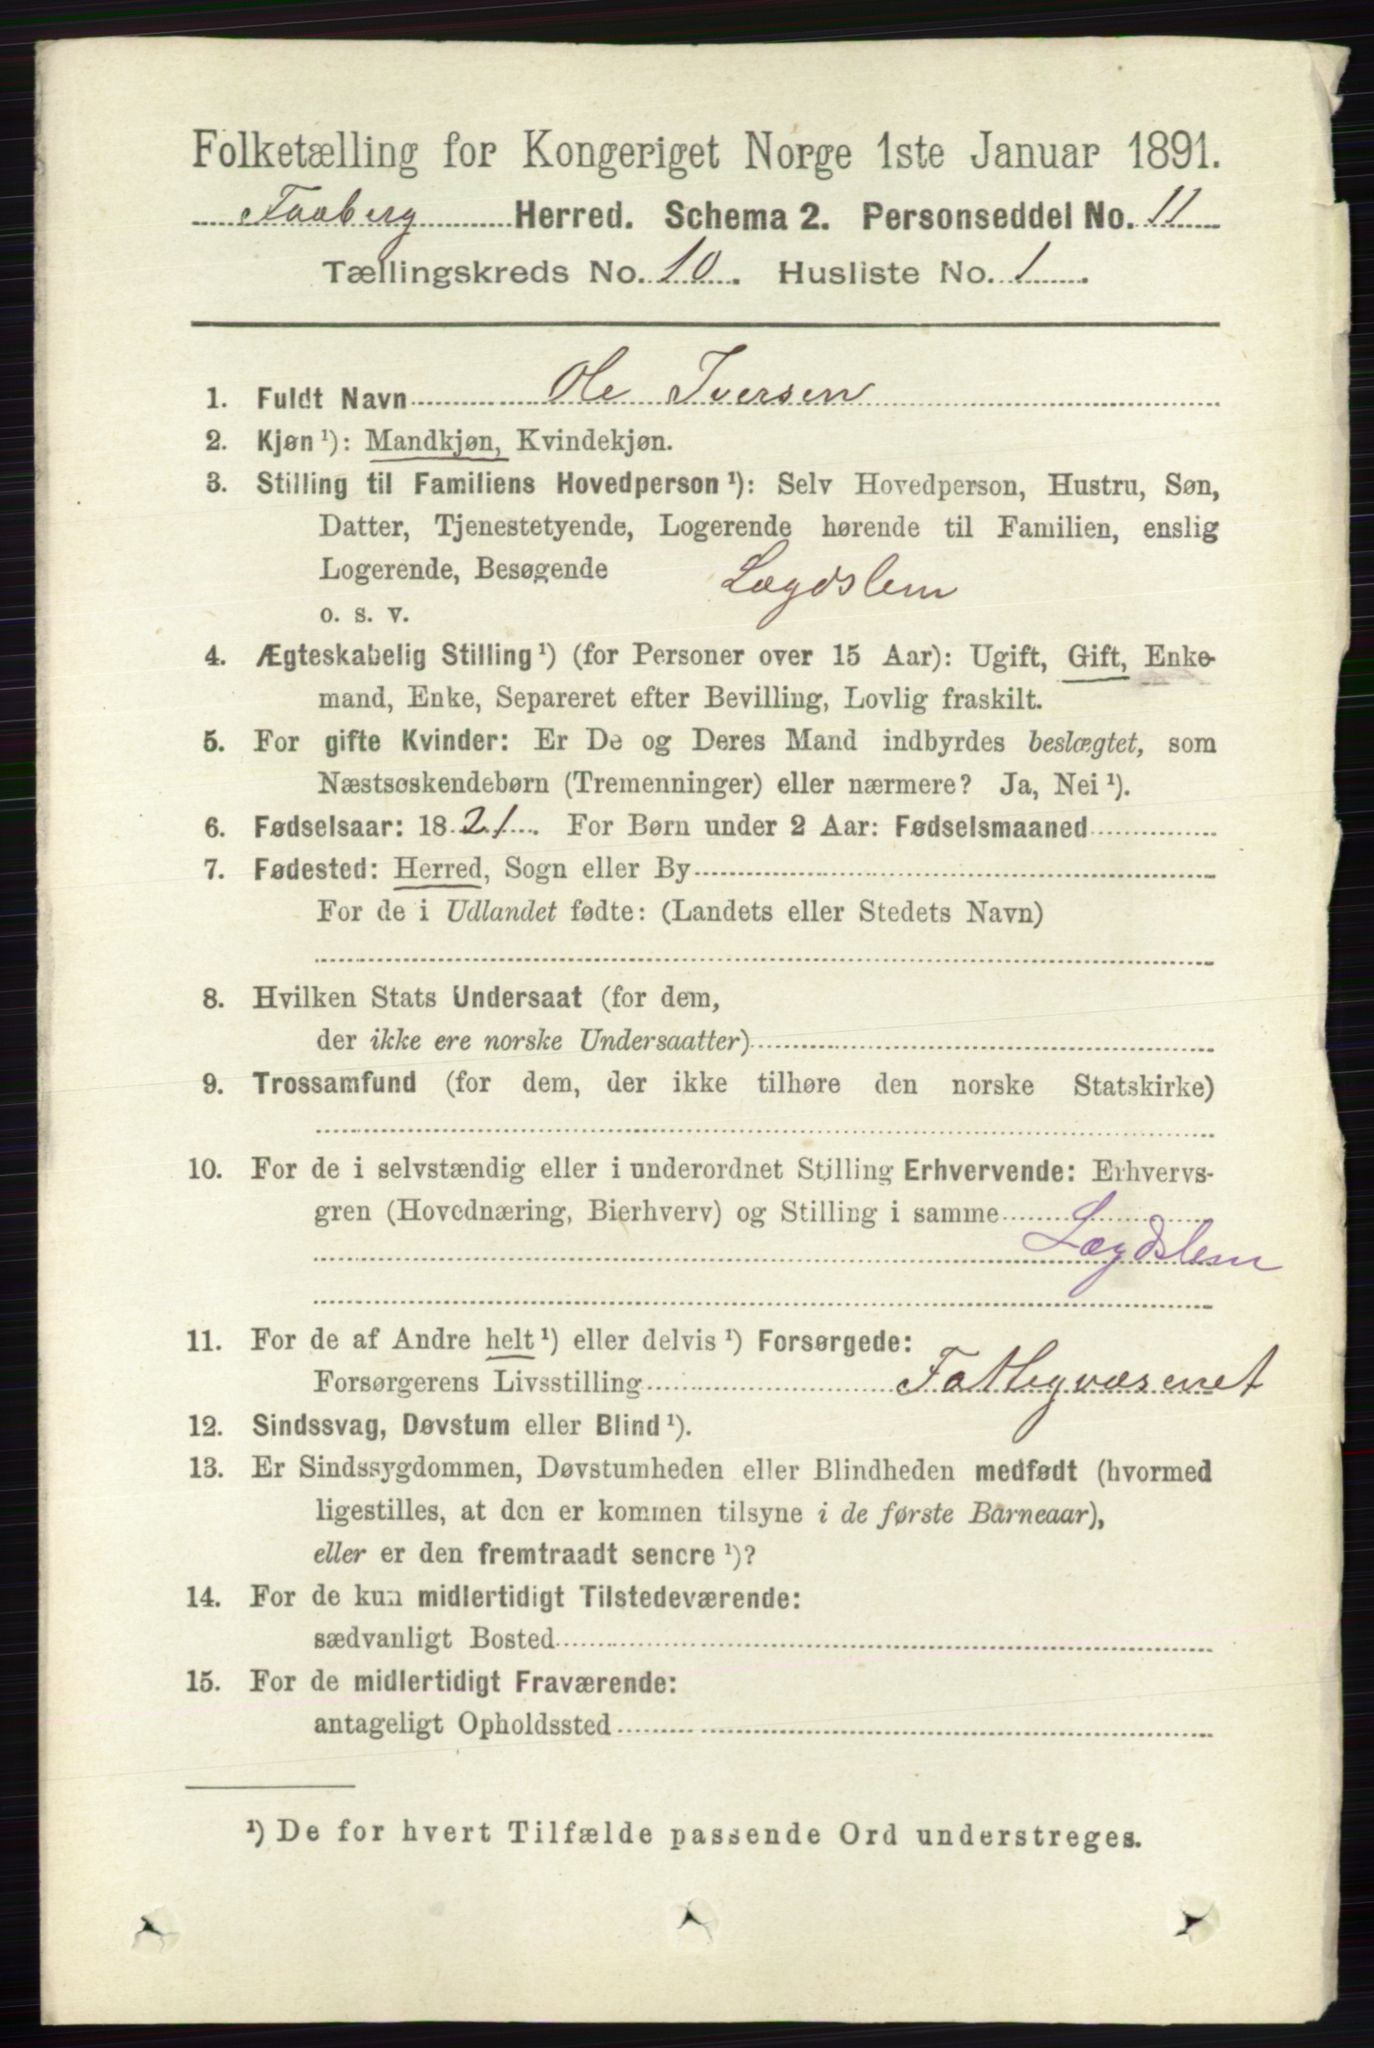 Folketælling for Kongeriget Norge 1ste Januar 1891.
Faaberg Herred. Schema 2. Personseddel No. 11
Tællingskreds No. 10. Husliste No. 1.
1. Fuldt Navn Ole Iversen
2. Kjøn ¹): Mandkjøn, Kvindekjøn.
3. Stilling til Familiens Hovedperson ¹): Selv Hovedperson, Hustru, Søn,
Datter, Tjenestetyende, Logerende hørende til Familien, enslig
Logerende, Besøgende Lægdslem
o. s. v.
4. Ægteskabelig Stilling ¹) (for Personer over 15 Aar): Ugift, Gift, Enke-
mand, Enke, Separeret efter Bevilling, Lovlig fraskilt.
5. For gifte Kvinder: Er De og Deres Mand indbyrdes beslægtet, som
Næstsøskendebørn (Tremenninger) eller nærmere? Ja, Nei ¹).
6. Fødselsaar: 1821. For Børn under 2 Aar: Fødselsmaaned
7. Fødested: Herred, Sogn eller By
For de i Udlandet fødte: (Landets eller Stedets Navn)
8. Hvilken Stats Undersaat (for dem,
der ikke ere norske Undersaatter)
9. Trossamfund (for dem, der ikke tilhøre den norske Statskirke)
10. For de i selvstændig eller i underordnet Stilling Erhvervende: Erhvervs-
gren (Hovednæring, Bierhverv) og Stilling i samme
Lægdslem
11. For de af Andre helt ¹) eller delvis ¹) Forsørgede:
Forsørgerens Livsstilling Fattigvæsenet
12. Sindssvag, Døvstum eller Blind ¹).
13. Er Sindssygdommen, Døvstumheden eller Blindheden medfødt (hvormed
ligestilles, at den er kommen tilsyne i de første Barneaar),
eller er den fremtraadt senere ¹)?
14. For de kun midlertidigt Tilstedeværende:
sædvanligt Bosted
15. For de midlertidigt Fraværende:
antageligt Opholdssted
¹) De for hvert Tilfælde passende Ord understreges.